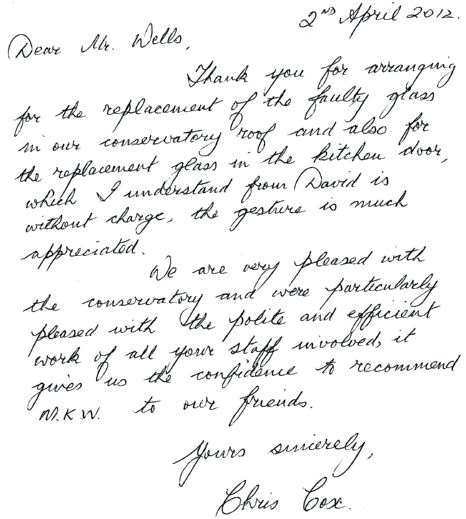 2ND April 2012.
Dear Mr. Wells,
Thank you for arranging
for the replacement of the faulty glass
in our conservatory roof and also for
the replacement glass in the kitchen door,
which I understand from David is
without charge, the gesture is much
appreciated.
We are very pleased with
the conservatory and were particularly
pleased with the polite and efficient
work of all your staff involved, it
gives us the confidence to recommend
M.K.W. to our friends.
Yours sincerely,
Chris Cox.